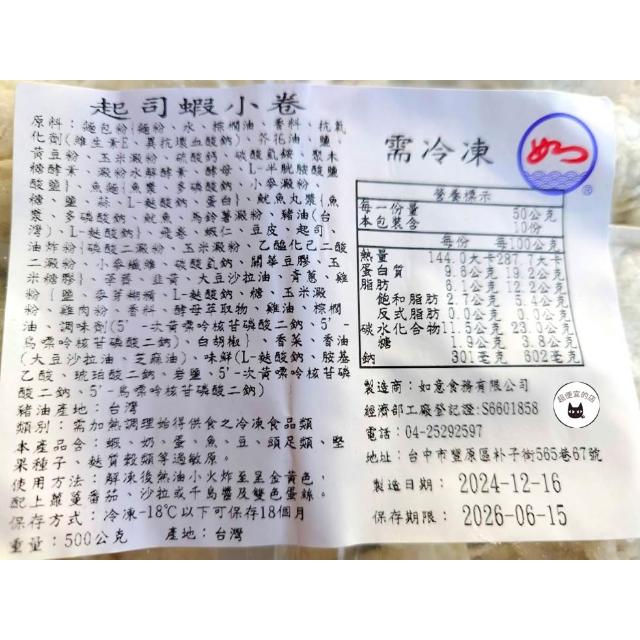 起司蝦小卷
原料：麵包粉{麵粉、水、棕櫚油、香料、抗氧
化劑(維生素E、異抗壞血酸鈉)、芥花油、鹽、
黃豆粉、玉米澱粉、碳酸鈣、碳酸氫銨、聚木
糖酵素、澱粉水解酵素、酵母、L-半胱胺酸鹽
酸鹽}、魚麵{魚漿、多磷酸鈉、小麥澱粉、
糖、鹽、蒜、L-麩酸鈉、蛋白}、魷魚丸漿{魚
漿、多磷酸鈉、魷魚、馬鈴薯澱粉、豬油(台
灣)、L-麩酸鈉}、飛卷、蝦仁、豆皮、起司、
油炸粉{磷酸二澱粉、玉米澱粉、乙醯化己二酸
二澱粉、小麥纖維、碳酸氫鈉、關華豆膠、玉
米糖膠}、荸薺、韭黃、大豆沙拉油、青蔥、雞
粉{鹽、麥芽糊精、L-麩酸鈉、糖、玉米澱
粉、雞肉粉、香料、酵母萃取物、雞油、棕櫚
油、調味劑(5'-次黃嘌呤核苷磷酸二鈉、5'-
鳥嘌呤核苷磷酸二鈉)、白胡椒}、香菜、香油
(大豆沙拉油、芝麻油)、味鮮(L-麩酸鈉、胺基
乙酸、琥珀酸二鈉、岩鹽、5'-次黃嘌呤核苷磷
酸二鈉、5'-鳥嘌呤核苷磷酸二鈉)
豬油產地：台灣
類別：需加熱調理始得供食之冷凍食品類
本產品含：蝦、奶、蛋、魚、豆、頭足類、堅
果種子、麩質穀類等過敏原。
使用方法：解凍後熱油小火炸至呈金黃色，
配上蘿蔓番茄、沙拉或千島醬及雙色蛋絲。
保存方式：冷凍-18℃以下可保存18個月
重量：500公克 產地：台灣
需冷凍
如一
®
營養標示
每一份量 50公克
本包裝含 10份
每份 每100公克
熱量 144.0大卡 287.7大卡
蛋白質 9.6公克 19.2公克
脂肪 6.1公克 12.2公克
飽和脂肪 2.7公克 5.4公克
反式脂肪 0.0公克 0.0公克
碳水化合物 11.5公克 23.0公克
糖 1.9公克 3.8公克
鈉 301毫克 602毫克
製造商：如意食務有限公司
經濟部工廠登記證:S6601858
電話：04-25292597
地址：台中市豐原區朴子街565巷67號
製造日期： 2024-12-16
保存期限： 2026-06-15
超便宜的店